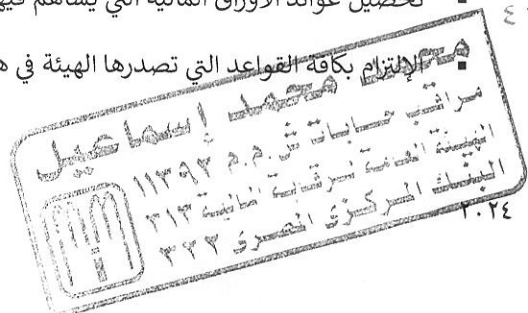 ■ تحصيل عوائد الأوراق المالية التي يساهم فيها
٤
■ الإلتزام بكافة القواعد التي تصدرها الهيئة في ه
محمد محمد إسماعيل
مراقب حسابات س.م.م ١١٣٩٢
الهيئة العامة للرقابة المالية ٣١٣
البنك المركزى المصرى ٣٢٢
٢٠٢٤